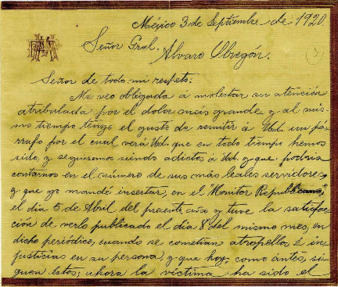 Méjico 3 de Septiembre de 1920
Señor Gral.
Alvaro Obregón.
Señor de todo mi respeto.
Me veo obligada á molestar su atención
atribulada por el dolor más grande y al mis-
mo tiempo tengo el gusto de remitir á Ud. un pá-
rrafo por el cual verá Ud. que en todo tiempo hemos
sido, y seguiremos siendo adictos á Ud. y que podria
contarnos en el número de sus más leales servidores,
y que yo mandé insertar, en el Monitor Republicano,
el dia 5 de Abril del presente año y tuve la satisfac-
ción de verlo publicado el dia 8 del mismo mes, en
dicho periódico, cuando se cometian atropellos é in-
justicias en su persona, y que hoy, como antes, si-
guen estos; ahora la victima ha sido el